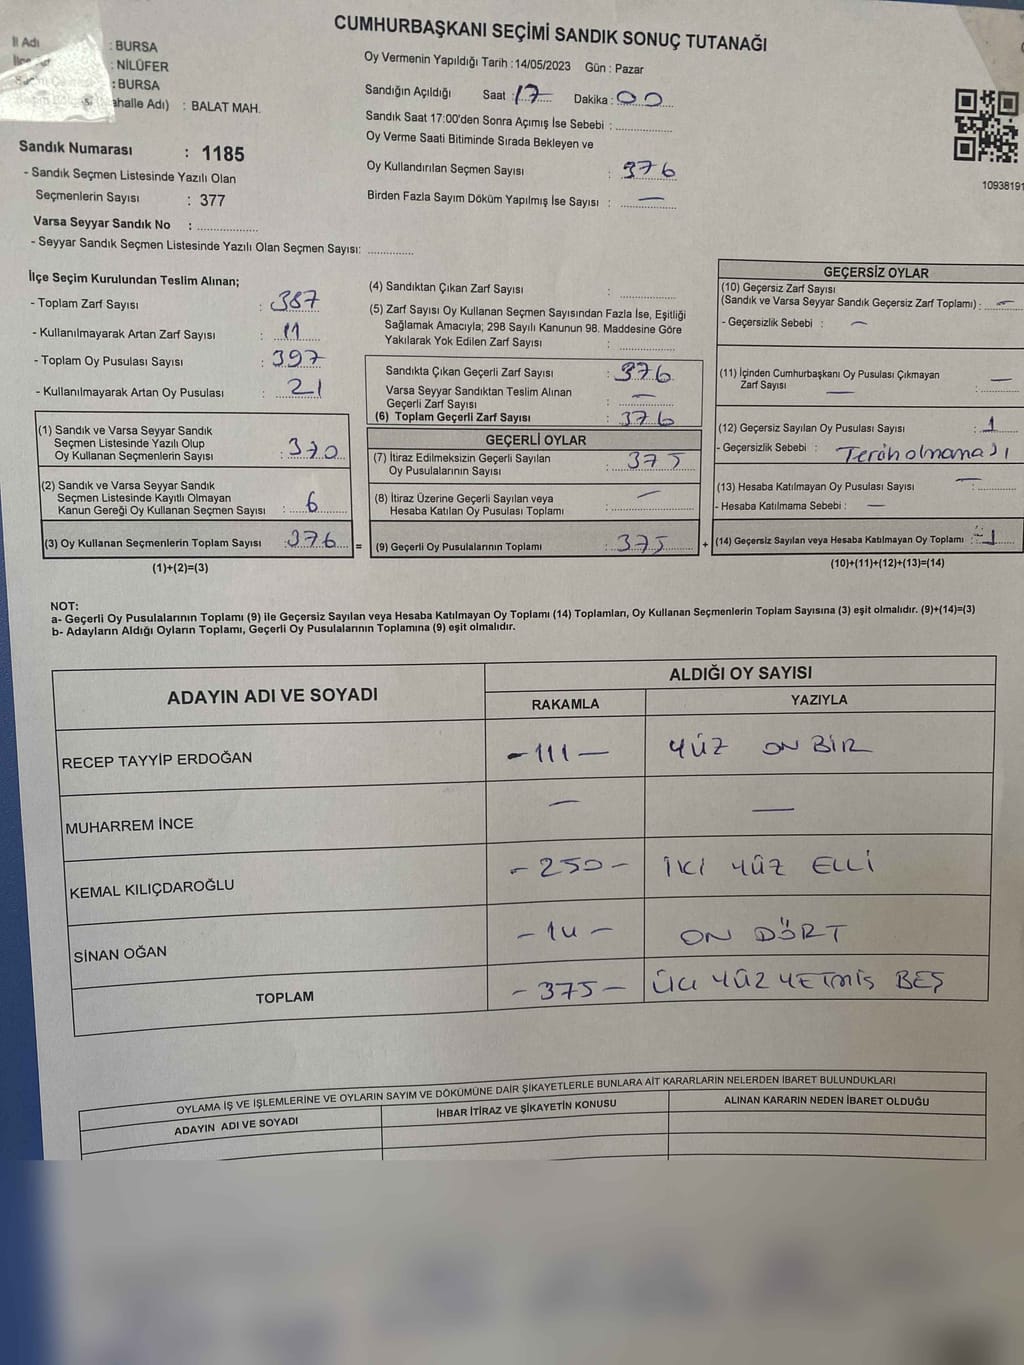 CUMHURBAŞKANI SEÇİMİ SANDIK SONUÇ TUTANAĞI
İl Adı : BURSA
: NİLÜFER
: BURSA
: BALAT MAH.
Oy Vermenin Yapıldığı Tarih : 14/05/2023 Gün : Pazar
Sandığın Açıldığı Saat : 17 Dakika : 00
Sandık Saat 17:00'den Sonra Açımış İse Sebebi :
Oy Verme Saati Bitiminde Sırada Bekleyen ve
Oy Kullandırılan Seçmen Sayısı : 376
Birden Fazla Sayım Döküm Yapılmış İse Sayısı : —
10938191
Sandık Numarası : 1185
- Sandık Seçmen Listesinde Yazılı Olan
Seçmenlerin Sayısı : 377
Varsa Seyyar Sandık No :
- Seyyar Sandık Seçmen Listesinde Yazılı Olan Seçmen Sayısı:
İlçe Seçim Kurulundan Teslim Alınan;
- Toplam Zarf Sayısı : 387
- Kullanılmayarak Artan Zarf Sayısı : 11
- Toplam Oy Pusulası Sayısı : 397
- Kullanılmayarak Artan Oy Pusulası : 21
(1) Sandık ve Varsa Seyyar Sandık
Seçmen Listesinde Yazılı Olup
Oy Kullanan Seçmenlerin Sayısı : 370
(2) Sandık ve Varsa Seyyar Sandık
Seçmen Listesinde Kayıtlı Olmayan
Kanun Gereği Oy Kullanan Seçmen Sayısı : 6
(3) Oy Kullanan Seçmenlerin Toplam Sayısı : 376 =
(1)+(2)=(3)
(4) Sandıktan Çıkan Zarf Sayısı :
(5) Zarf Sayısı Oy Kullanan Seçmen Sayısından Fazla İse, Eşitliği
Sağlamak Amacıyla; 298 Sayılı Kanunun 98. Maddesine Göre
Yakılarak Yok Edilen Zarf Sayısı :
Sandıkta Çıkan Geçerli Zarf Sayısı : 376
Varsa Seyyar Sandıktan Teslim Alınan
Geçerli Zarf Sayısı : —
(6) Toplam Geçerli Zarf Sayısı : 376
GEÇERLİ OYLAR
(7) İtiraz Edilmeksizin Geçerli Sayılan
Oy Pusulalarının Sayısı : 375
(8) İtiraz Üzerine Geçerli Sayılan veya
Hesaba Katılan Oy Pusulası Toplamı : —
(9) Geçerli Oy Pusulalarının Toplamı : 375 +
GEÇERSİZ OYLAR
(10) Geçersiz Zarf Sayısı
(Sandık ve Varsa Seyyar Sandık Geçersiz Zarf Toplamı) : —
- Geçersizlik Sebebi : —
(11) İçinden Cumhurbaşkanı Oy Pusulası Çıkmayan
Zarf Sayısı — : —
(12) Geçersiz Sayılan Oy Pusulası Sayısı : 1
- Geçersizlik Sebebi : Tercih olmaması
(13) Hesaba Katılmayan Oy Pusulası Sayısı — :
- Hesaba Katılmama Sebebi : —
(14) Geçersiz Sayılan veya Hesaba Katılmayan Oy Toplamı : -1
(10)+(11)+(12)+(13)=(14)
NOT:
a- Geçerli Oy Pusulalarının Toplamı (9) ile Geçersiz Sayılan veya Hesaba Katılmayan Oy Toplamı (14) Toplamları, Oy Kullanan Seçmenlerin Toplam Sayısına (3) eşit olmalıdır. (9)+(14)=(3)
b- Adayların Aldığı Oyların Toplamı, Geçerli Oy Pusulalarının Toplamına (9) eşit olmalıdır.
ADAYIN ADI VE SOYADI
ALDIĞI OY SAYISI
RAKAMLA YAZIYLA
RECEP TAYYİP ERDOĞAN - 111 — YÜZ ON BİR
MUHARREM İNCE — —
KEMAL KILIÇDAROĞLU - 250 - İKİ YÜZ ELLİ
SİNAN OĞAN - 14 - ON DÖRT
TOPLAM - 375 - ÜÇ YÜZ YETMİŞ BEŞ
OYLAMA İŞ VE İŞLEMLERİNE VE OYLARIN SAYIM VE DÖKÜMÜNE DAİR ŞİKAYETLERLE BUNLARA AİT KARARLARIN NELERDEN İBARET BULUNDUKLARI
ADAYIN ADI VE SOYADI İHBAR İTİRAZ VE ŞİKAYETİN KONUSU ALINAN KARARIN NEDEN İBARET OLDUĞU